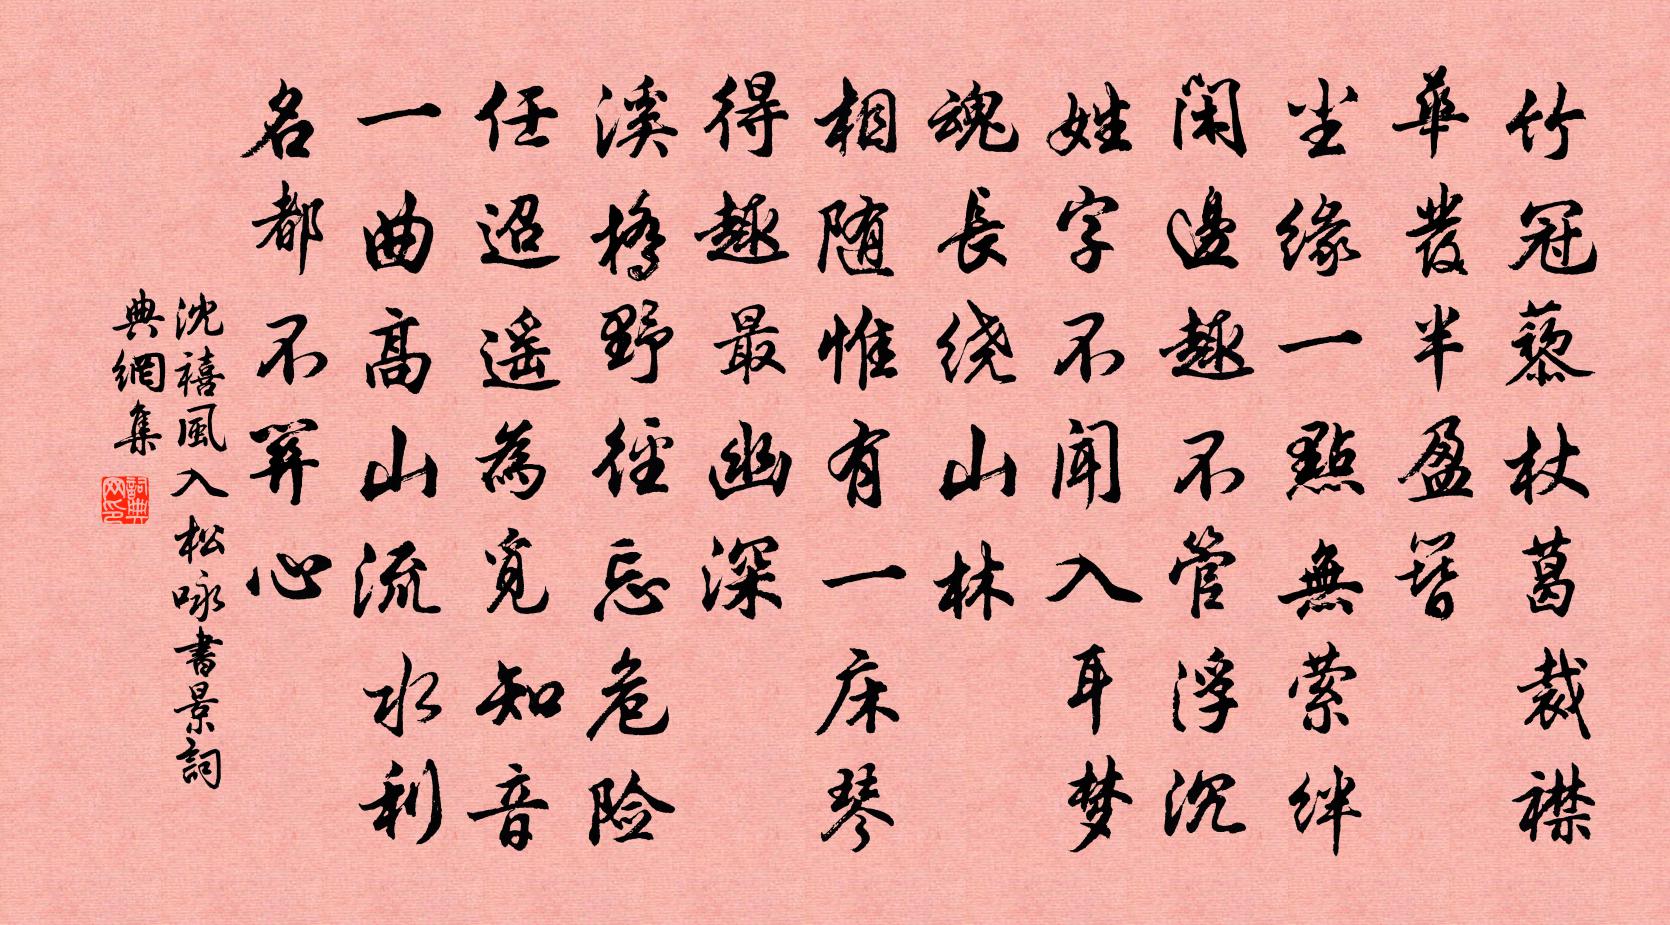 竹冠藜杖葛裁襟
華發半盈簪
尘缘一點無萦絆
闲邊趣不管浮沉
姓字不聞入耳梦
魂長绕山林
相随惟有一床琴
得趣最幽深
溪橋野徑忘危险
任迢遥為觅知音
一曲高山流水利
名都不關心
沈禧風入松咏書景詞
典網集
詞典网印